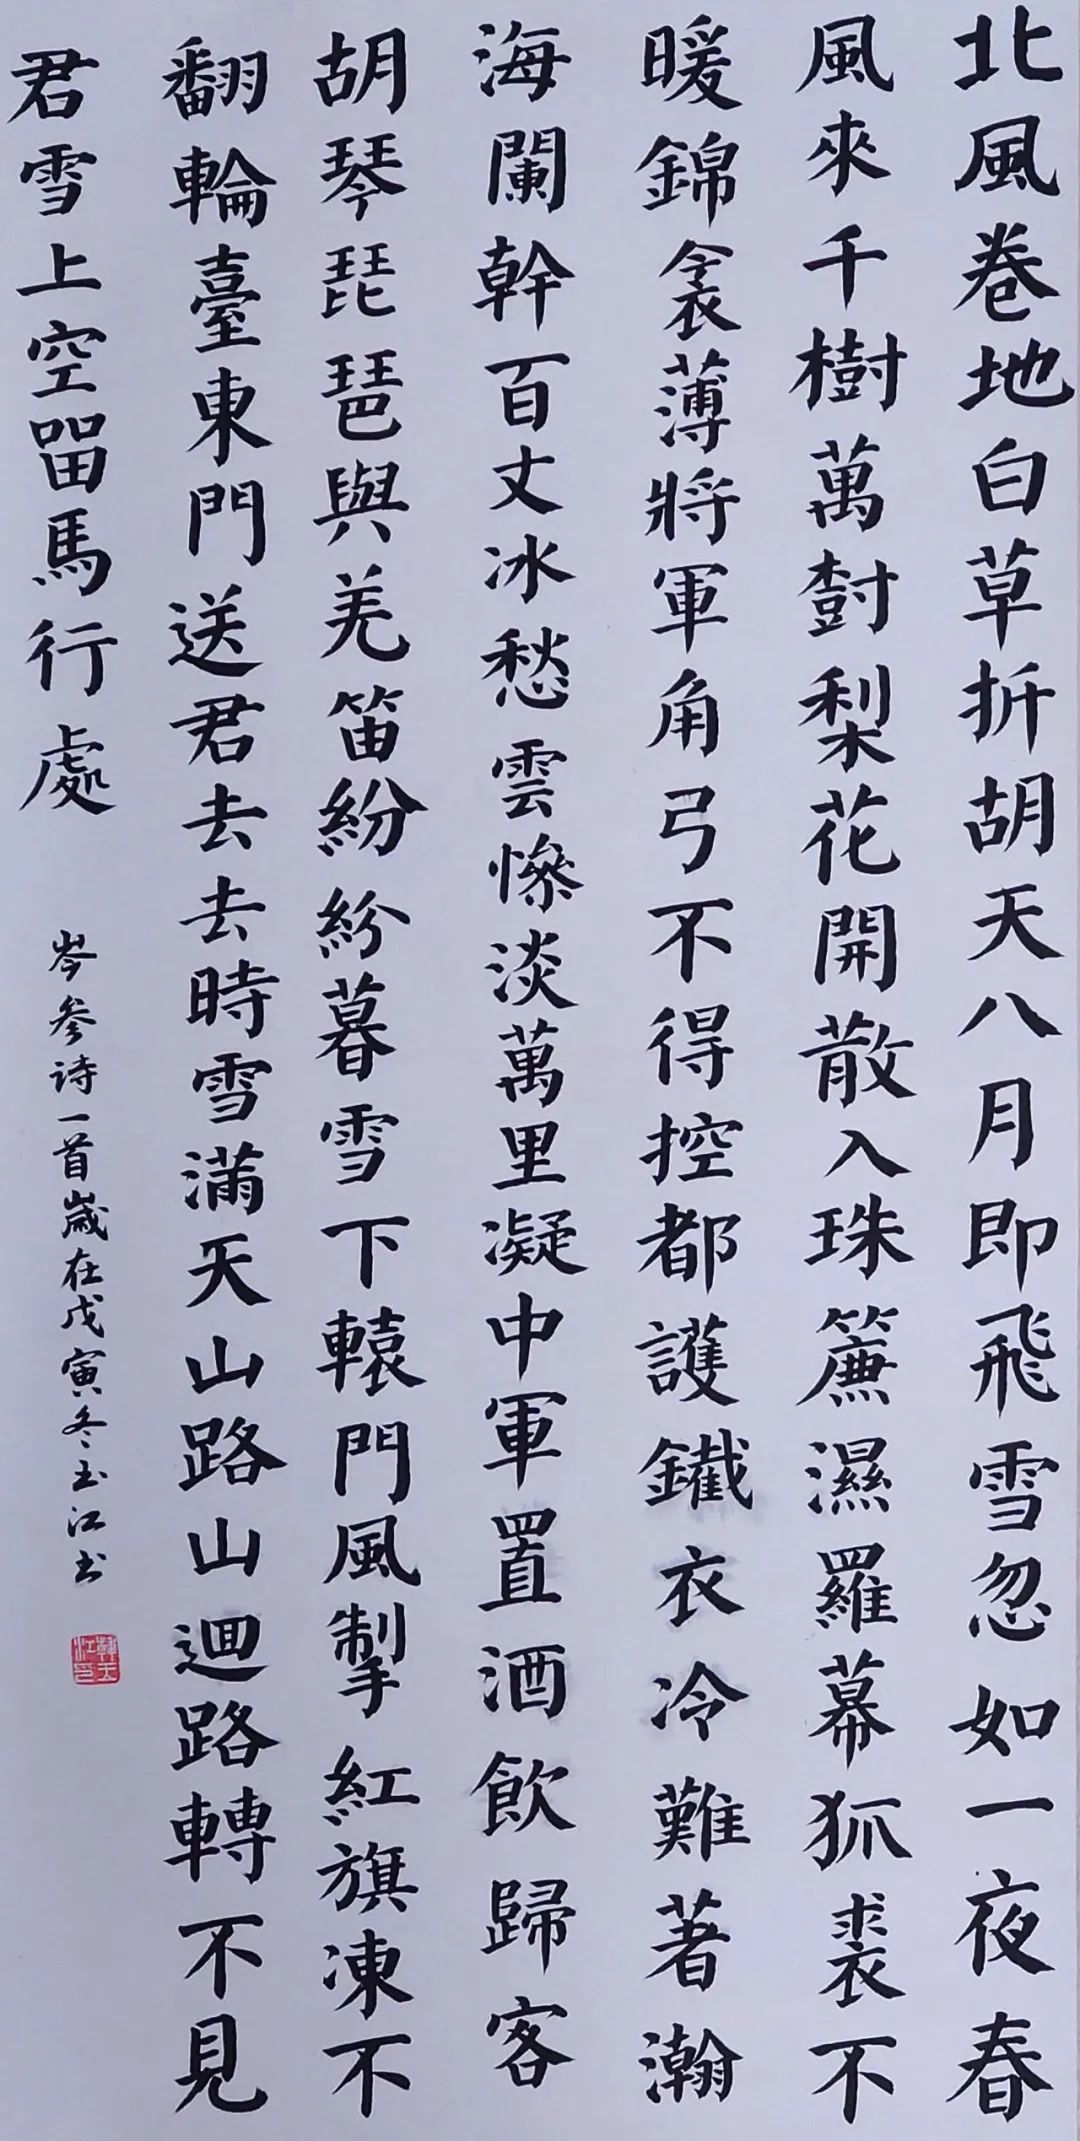 北風卷地白草折胡天八月即飛雪忽如一夜春
風來千樹萬樹梨花開散入珠簾濕羅幕狐裘不
暖錦衾薄將軍角弓不得控都護鐵衣冷難著瀚
海闌幹百丈冰愁雲慘淡萬里凝中軍置酒飲歸客
胡琴琵琶與羌笛紛紛暮雪下轅門風掣紅旗凍不
翻輪臺東門送君去去時雪滿天山路山迴路轉不見
君雪上空留馬行處
岑參诗一首歲在戊寅冬玉江书